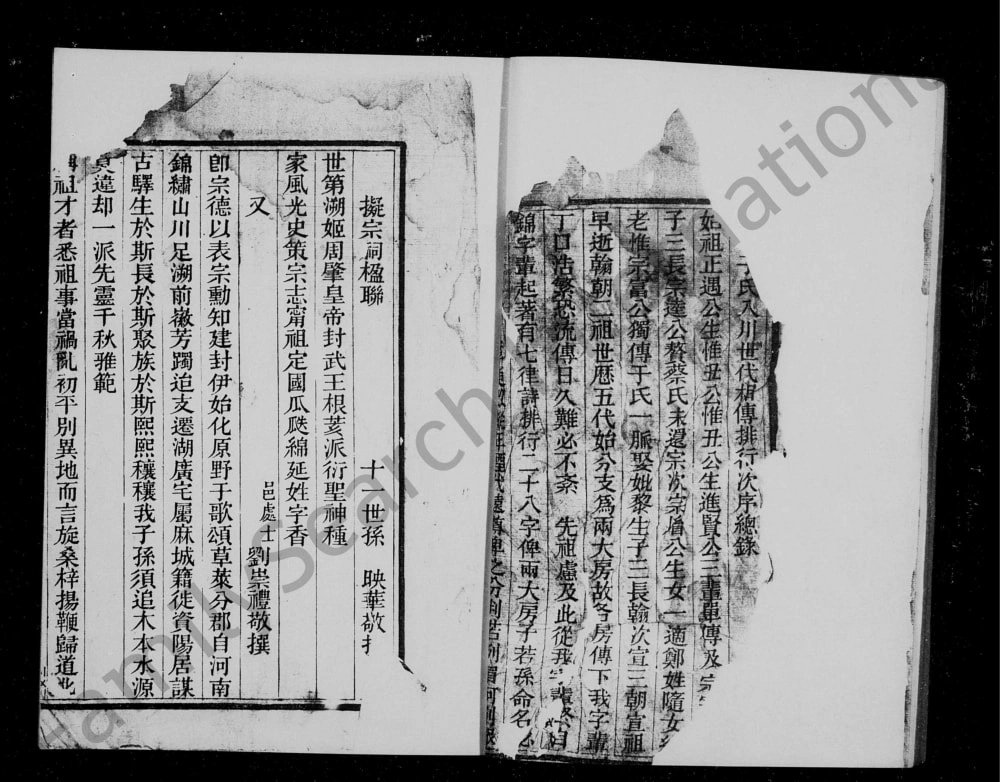 于氏入川世代相傳排行次序總錄
祖正遇公生惟丑公惟丑公生進賢公三輩單傳及宗
子三長宗選公贅蔡氏未還宗次宗眉公生女一適鄭姓隨女
老惟宗富公獨傳于氏一脈娶妣黎生子三長翰次宣三朝宣祖
早逝翰朝二祖世歷五代始分支為兩大房故各房傳下我字輩
丁口浩繁恐流傳日久難必不紊 先祖慮及此從我字輩
錦字輩起著有七律詩排行二十八字俾兩大房子若孫命名
擬宗祠楹聯
十一世孫 映華敬
世第溯姬周肇皇帝封武王根荄派衍聖神種
家風光史策宗志甯祖定國瓜瓞綿延姓字香
又 邑處士 劉崇禮敬撰
卽宗德以表宗勳知建封伊始化原野于歌頌草萊分郡自河南
錦繡山川足溯前徽芳躅追支遷湖廣宅屬麻城籍徙資陽居謀
古驛生於斯長於斯聚族於斯熙熙穰穰我子孫須追木本水源
莫違却一派先靈千秋雅範
祖才者悉祖事當禍亂初平別異地而言旋桑梓揚鞭歸道
Hamil Search National